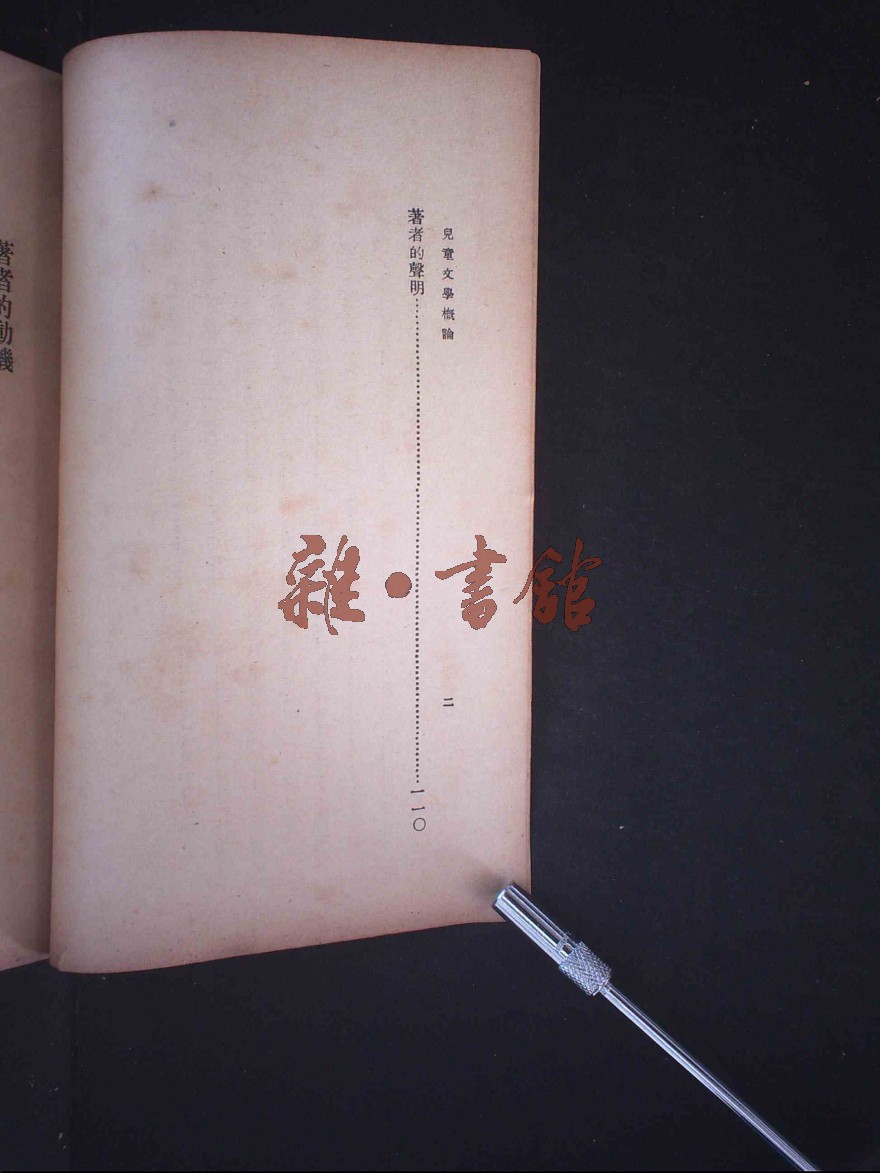 兒童文學概論
二
著者的聲明……一一〇
著者的動機
雜·書館